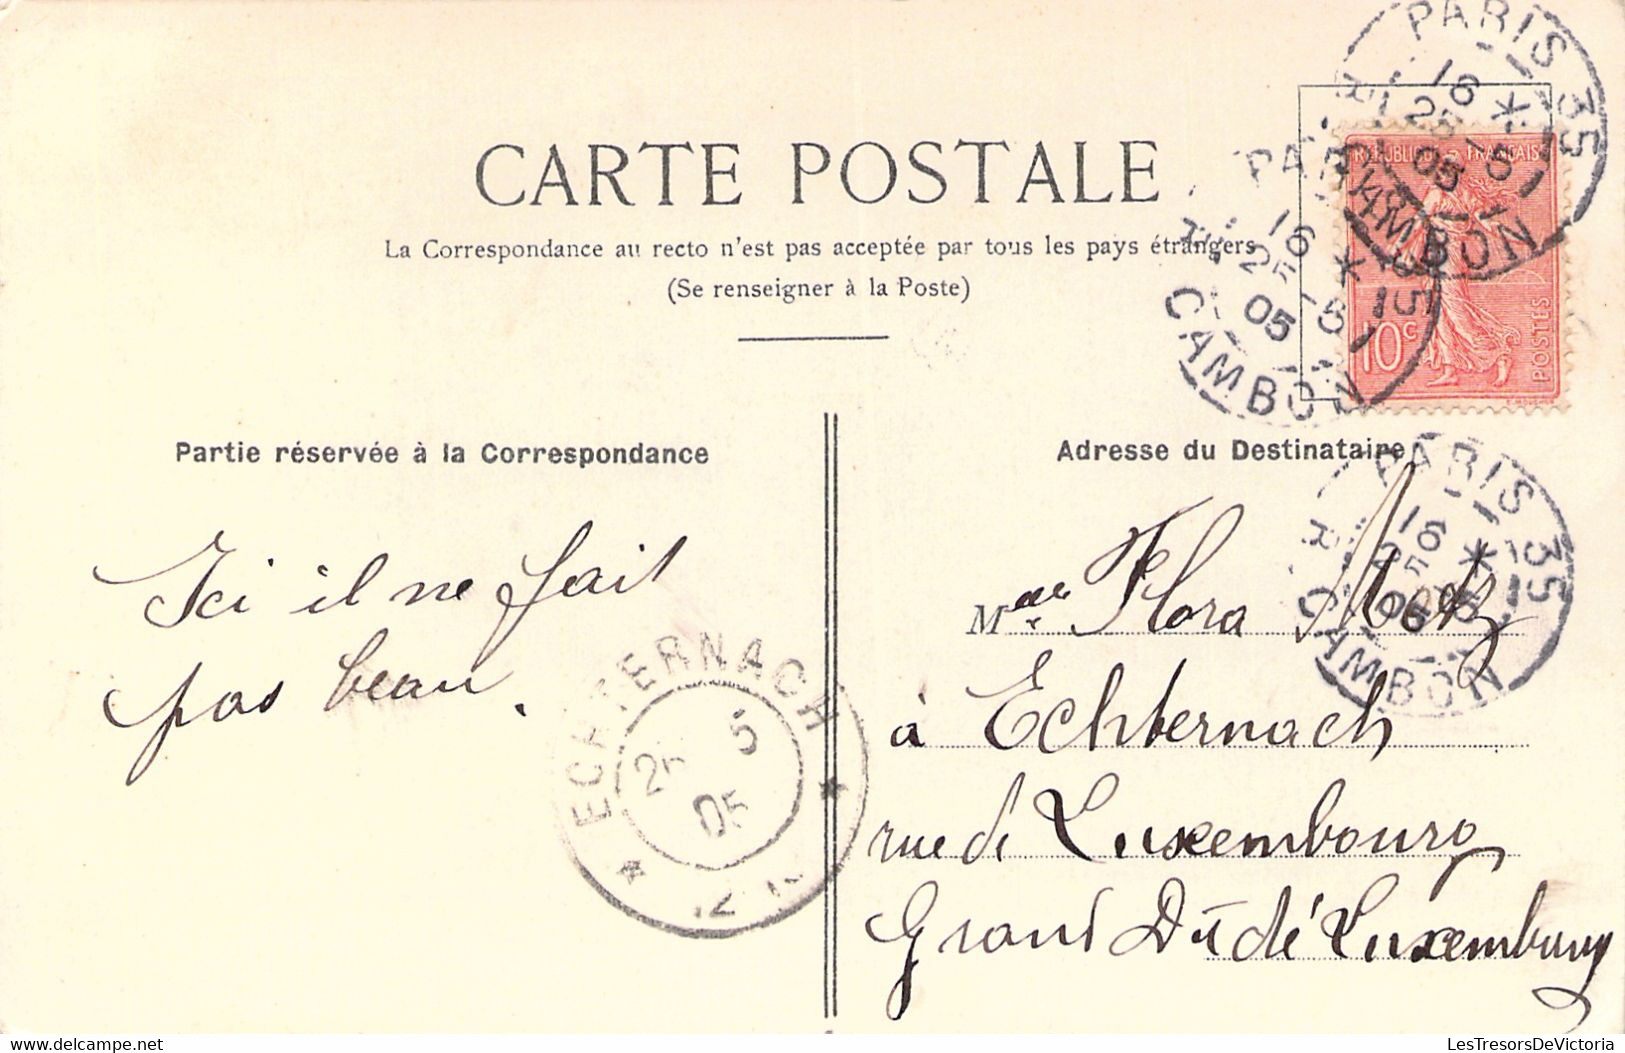 CARTE POSTALE
La Correspondance au recto n'est pas acceptée par tous les pays étrangers
(Se renseigner à la Poste)
PARIS 35
16 *
25 - 5
05
R. CAMBON
REPUBLIQUE FRANÇAISE
10c
POSTES
PARIS 35
16 *
25 - 5
05
R. CAMBON
Partie réservée à la Correspondance
Ici il ne fait
pas beau.
ECHTERNACH
25 5
05
Adresse du Destinataire
PARIS 35
16 *
25 5
05
R. CAMBON
Flora
à Echternach
rue de Luxembourg
Grand Dû dé Luxembourg
delcampe.net
LesTresorsDeVictoria